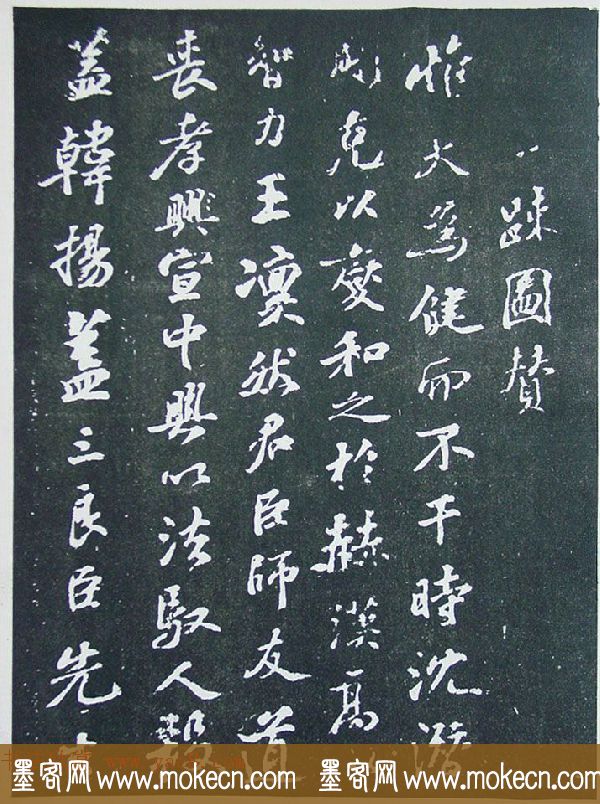 二疎圖賛
惟天為健而不干時沈潜
剛克以燮和之於赫漢高
智力王凛然君臣師友道
喪孝興宣中興以法馭人殺
盖韓揚盖三良臣先
墨客网 www.mokecn.com 墨客网 www.mokecn.com